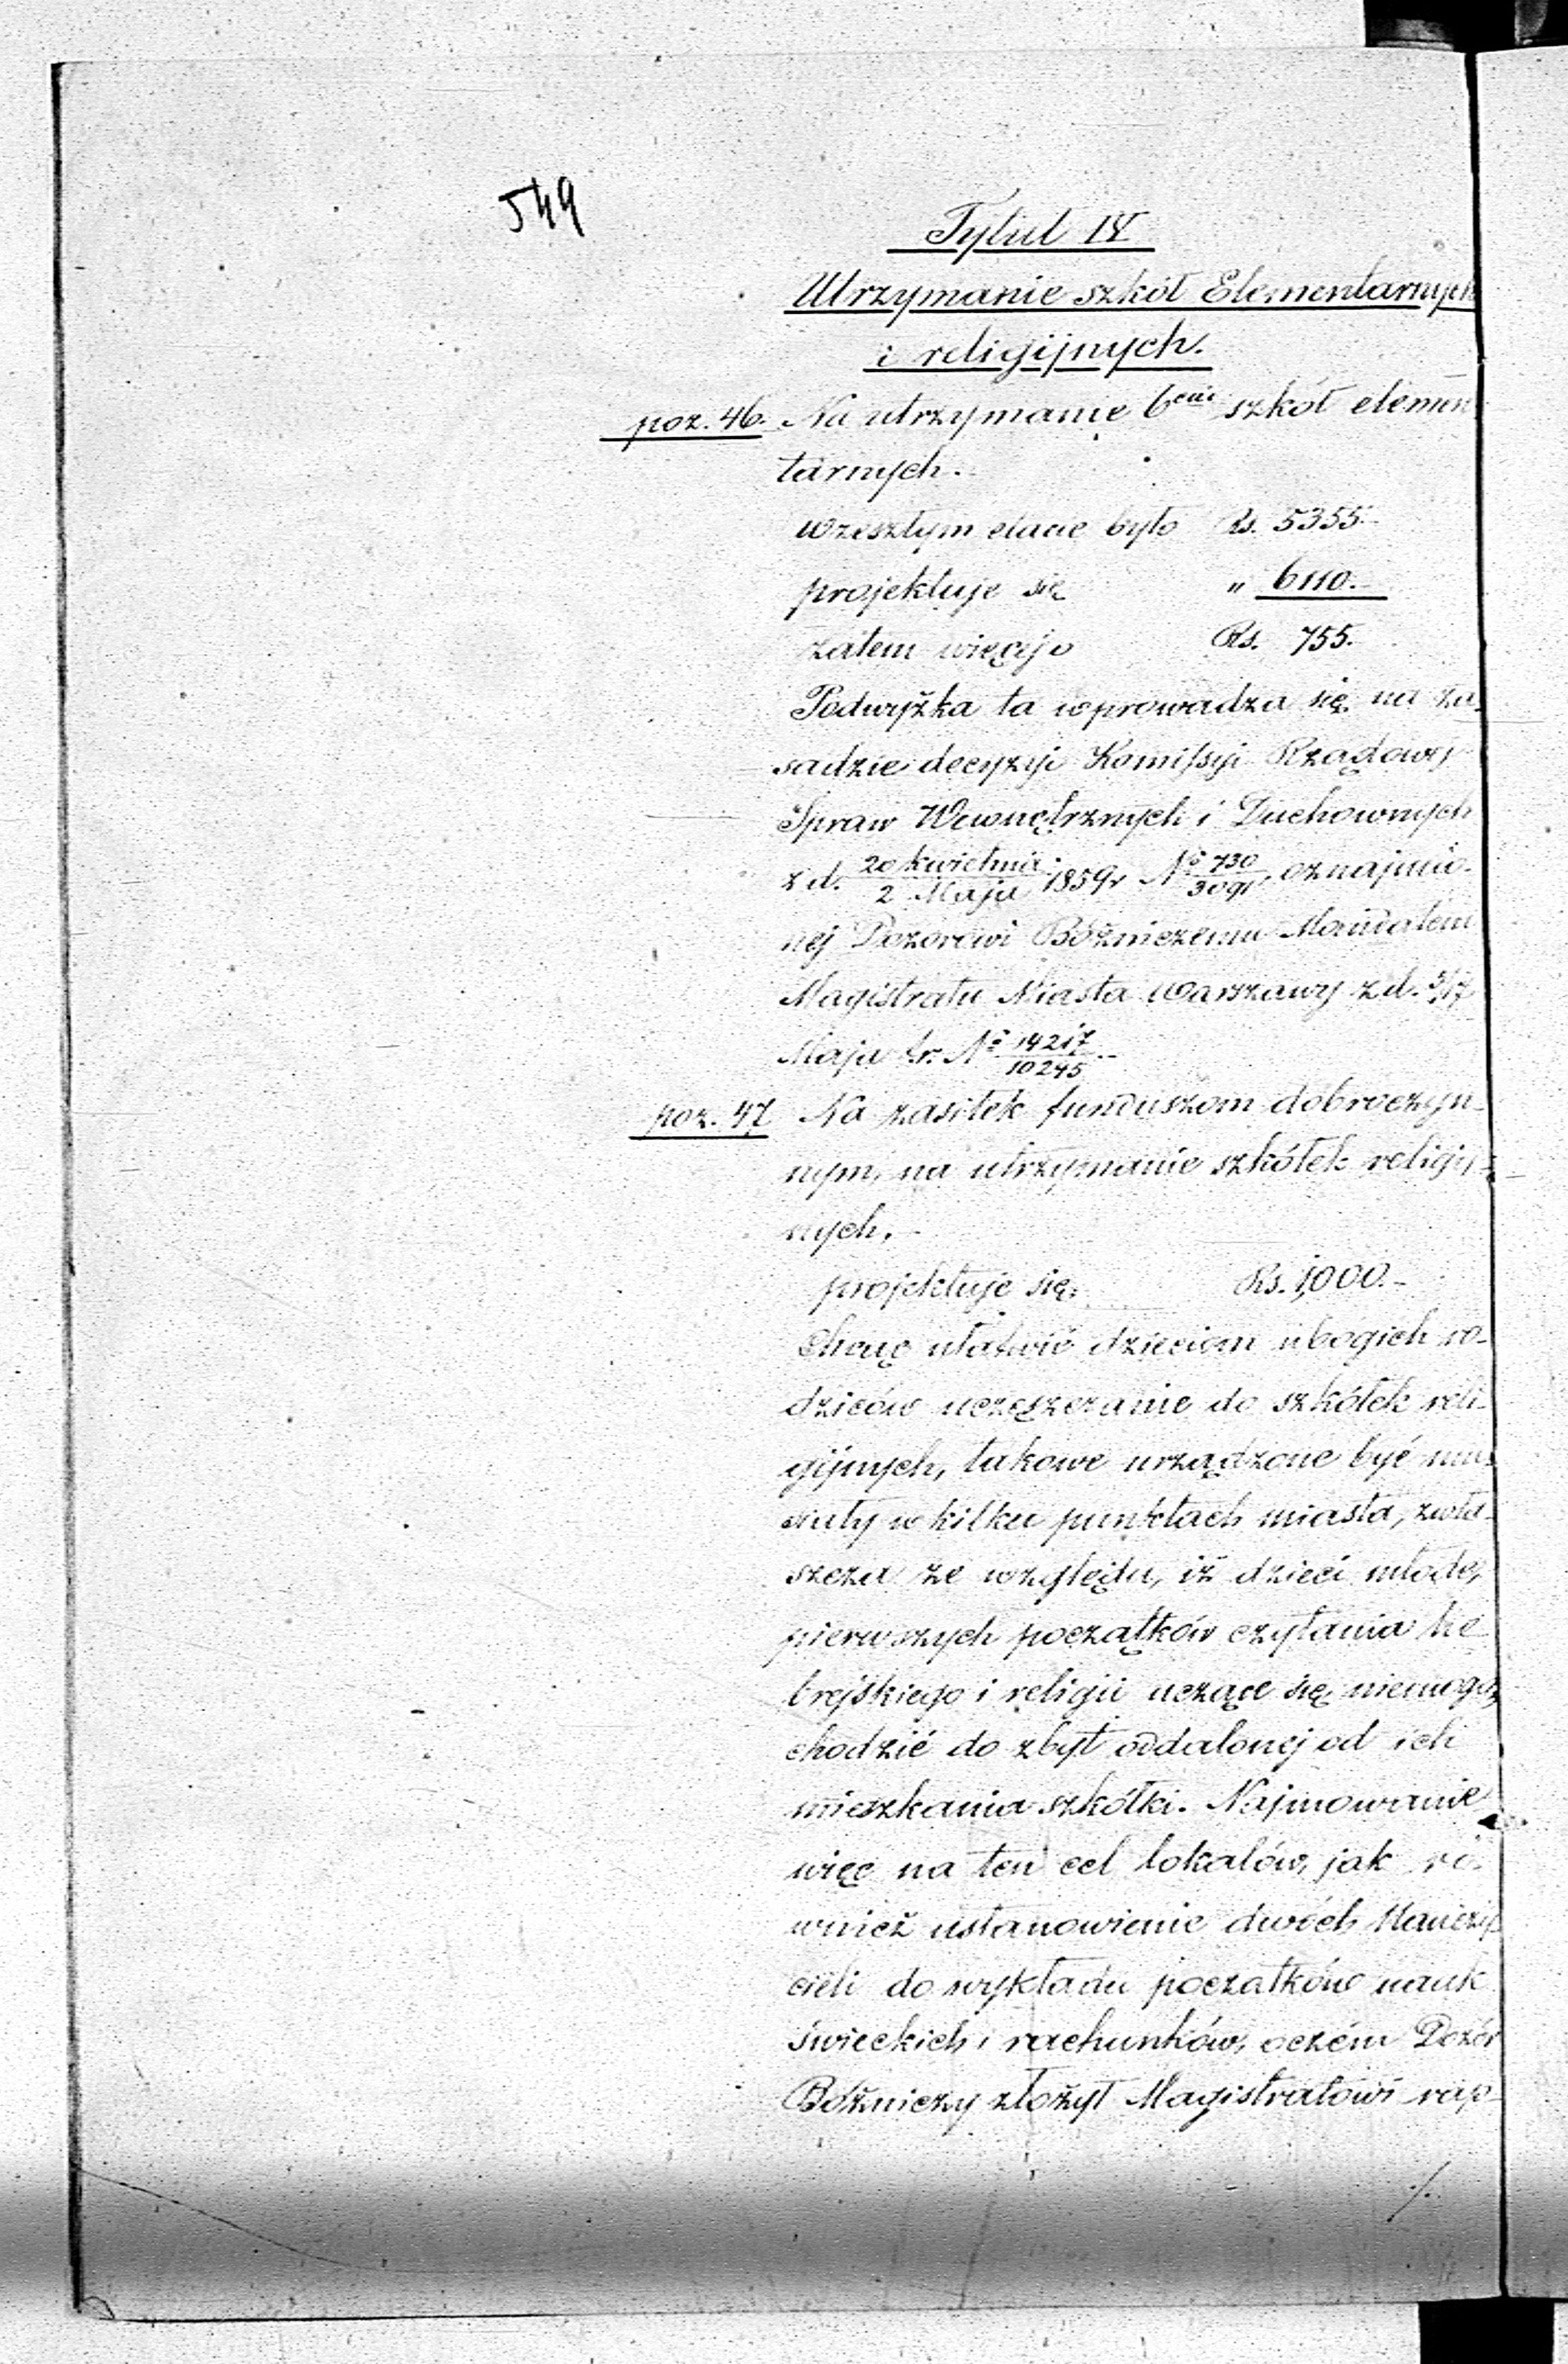 549
Tytuł IV
Utrzymanie szkół Elementarnych
i religijnych.
poz. 46. Na utrzymanie 6ciu szkół elemen
tarnych.
w zeszłym etacie było Rs. 5355.-
projektuje się " 6110.-
zatem więcej o Rs. 755.
Podwyżka ta wprowadza się na za-
sadzie decyzyi Komissyi Rządowej
Spraw Wewnętrznych i Duchownych
z d. 20 kwietnia / 2 Maja 1859 r № 730 / 3091, oznajmio-
nej Dozorowi Bóżniczemu Mandatem
Magistratu Miasta Warszawy z d. 5/17
Maja t.r. № 14217 / 10245.-
poz. 47 Na zasiłek funduszom dobroczyn-
nym, na utrzymanie szkółek religij-
nych.-
projektuje się. Rs. 1,000.-
Chcąc ułatwić dzieciom ubogich ro-
dziców uczęszczanie do szkółek reli-
gijnych, takowe urządzone być mu-
siały w kilku punktach miasta, zwła-
szcza ze względu, iż dzieci młode,
pierwszych początków czytania he
brejskiego i religii uczące się, niemogą
chodzić do zbyt oddalonej od ich
mieszkania szkółki. Najmowanie
więc na ten cel lokalów, jak ró-
wnież ustanowienie dwóch Nauczy
cieli do wykładu początków nauk
świeckich i rachunków, o czém Dozór
Bóżniczy złożył Magistratowi rap-
./.